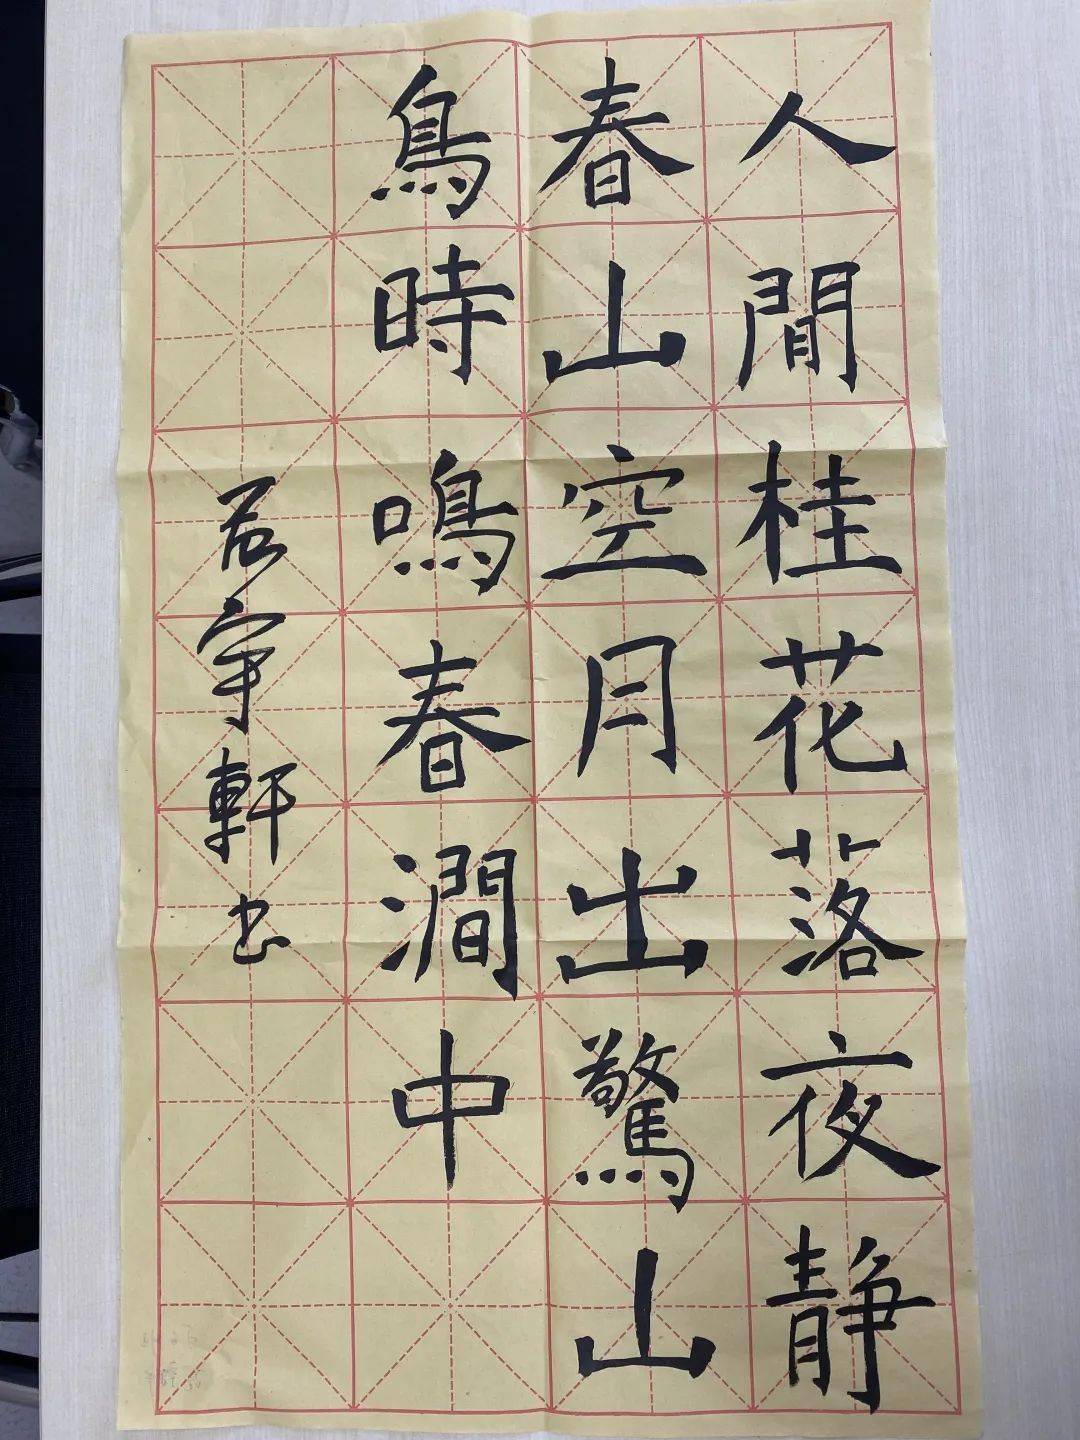 人閒桂花落夜静
春山空月出驚山
鳥時鳴春澗中
宇軒书